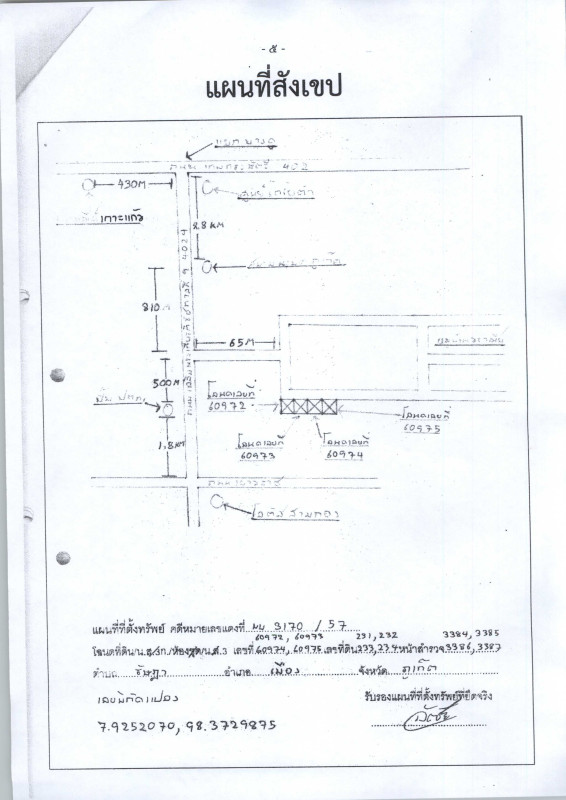 - ๕ -
แผนที่สังเขป
แยกบางคู
ถนน เทพกระษัตรี 402
430M
เกาะแก้ว
2.8 KM
ถนน เฉลิมพระเกียรติ ร.9 4024
810 M
65 M
500 M
ปั๊ม ปตท.
1.8 KM
โฉนดเลขที่
60972
โฉนดเลขที่
60975
โฉนดเลขที่
60973
โฉนดเลขที่
60974
ถนนเยาวราช
โลตัส สามกอง
แผนที่ที่ตั้งทรัพย์ คดีหมายเลขแดงที่ ผบ 3170 / 57
60972, 60973 231, 232 3384, 3385
โฉนดที่ดิน/น.ส.3ก./ห้องชุด/น.ส.3 เลขที่ 60974, 60975 เลขที่ดิน 233, 234 หน้าสำรวจ 3386, 3387
ตำบล รัษฎา อำเภอ เมือง จังหวัด ภูเก็ต
เลขพิกัดแปลง รับรองแผนที่ที่ตั้งทรัพย์ที่ยึดจริง
7.9252070, 98.3729875